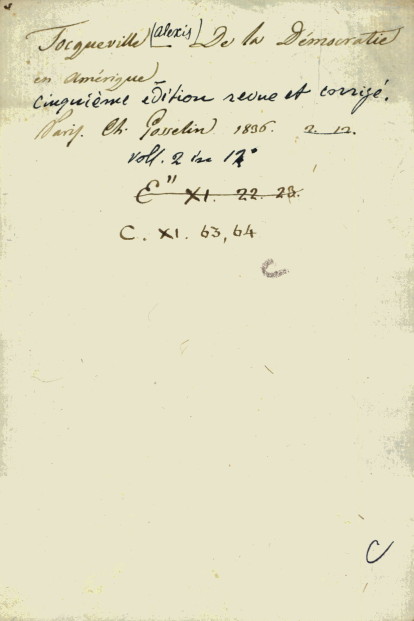 Tocqueville (Alexis) De la Démocratie
en Amérique)
cinquième édition revue et corrigé.
Paris. Ch. Gosselin 1836. 2. 12.
Voll. 2 in 12°
E" XI. 22. 23.
C. XI. 63, 64
C
C